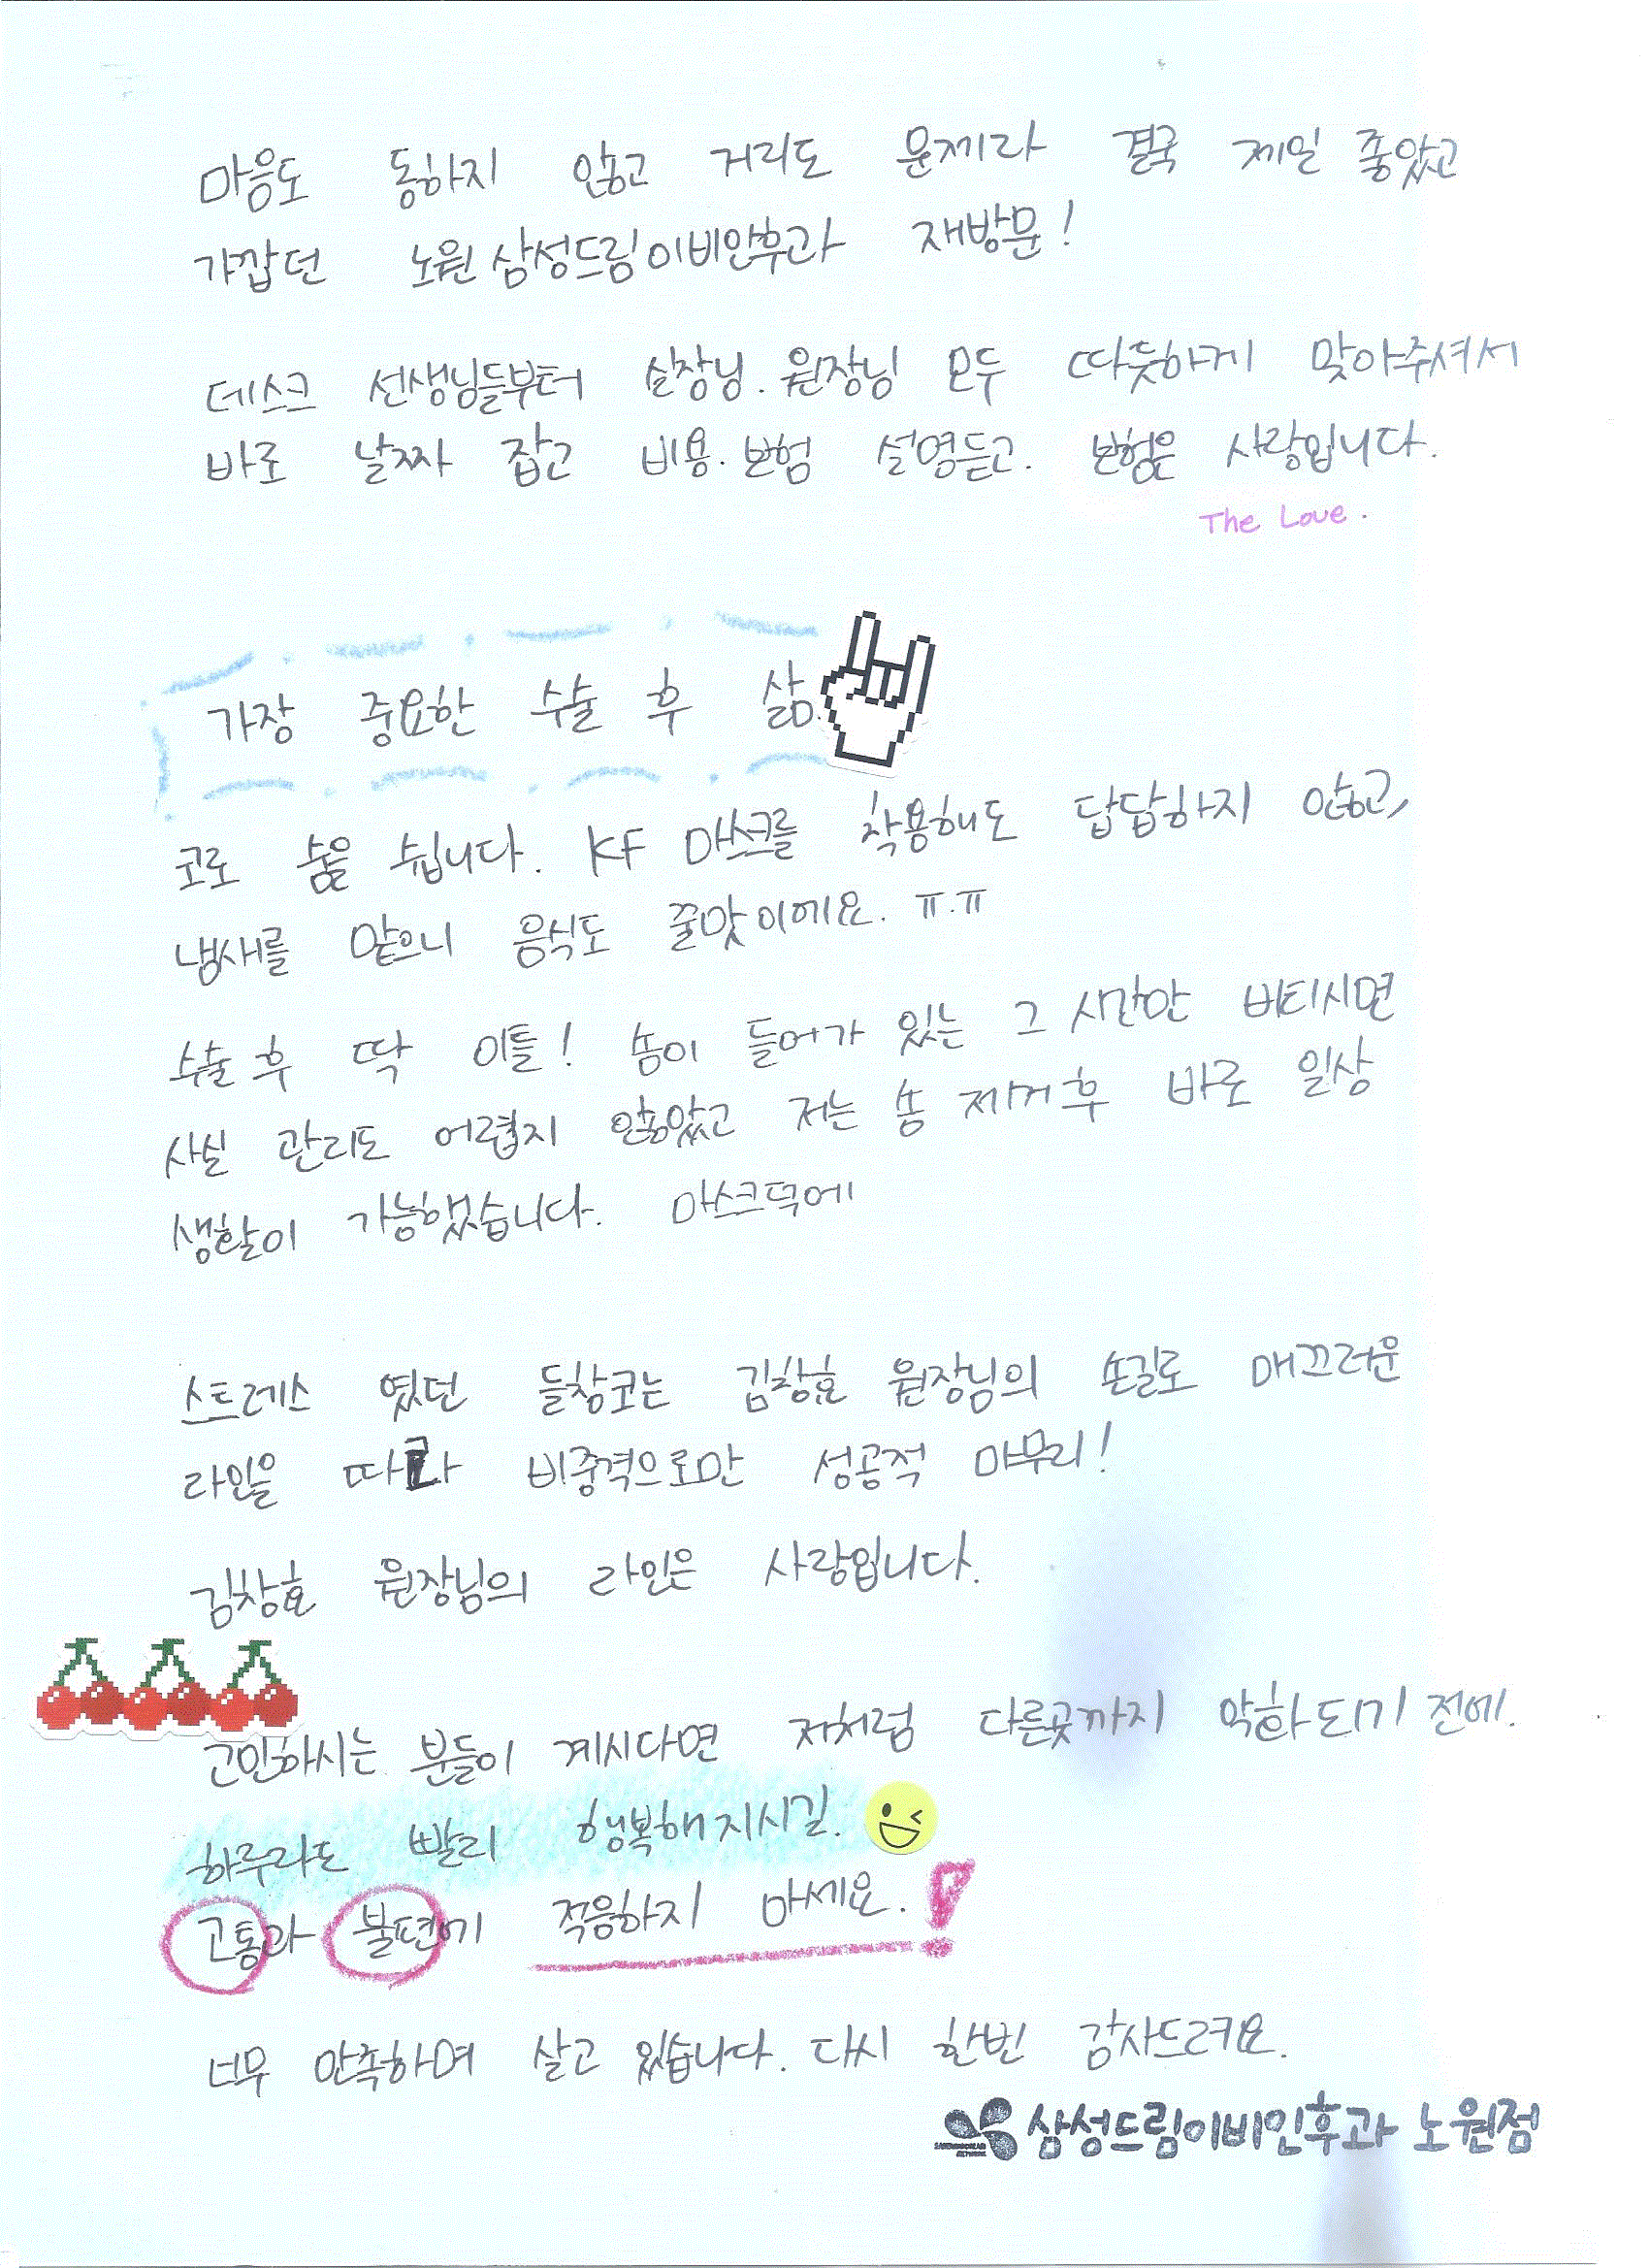 마음도 동하지 않고 거리도 문제라 결국 제일 좋았고
가깝던 노원삼성드림이비인후과 재방문!
데스크 선생님들부터 실장님. 원장님 모두 따듯하게 맞아주셔서
바로 날짜 잡고 비용. 보험 설명듣고. 보험은 사랑입니다.
The Love.
가장 중요한 수술 후 삶.
코로 숨을 쉽니다. KF 마스크를 착용해도 답답하지 않고,
냄새를 맡으니 음식도 꿀맛이에요. ㅠ.ㅠ
수술 후 딱 이틀! 솜이 들어가 있는 그 시간만 버티시면
사실 관리도 어렵지 않았고 저는 솜 제거후 바로 일상
생활이 가능했습니다. 마스크덕에
스트레스 였던 들창코는 김창효 원장님의 손길로 매끄러운
라인을 따라 비중격으로만 성공적 마무리!
김창효 원장님의 라인은 사랑입니다.
고민하시는 분들이 계시다면 저처럼 다른곳까지 악화되기 전에.
하루라도 빨리 행복해지시길.
고통과 불편에 적응하지 마세요.!
너무 만족하며 살고 있습니다. 다시 한번 감사드려요.
삼성드림이비인후과 노원점